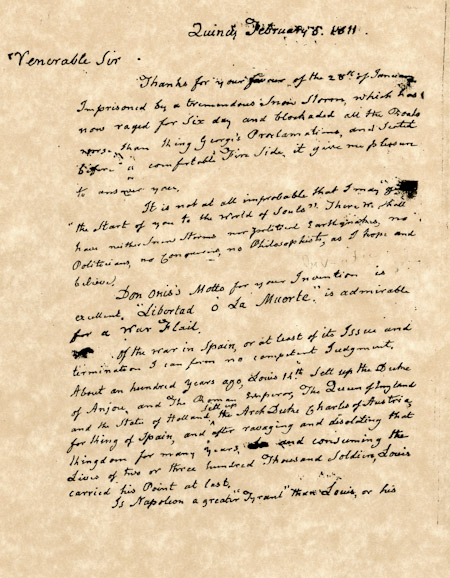 Quincy February 5. 1811.
Venerable Sir
Thanks for your favour of the 28th of January
Imprisoned by a tremendous Snow Storm, which has
now raged for Six day and blockaded all the Roads
worse than King George's Proclamations, and Seated
before a comfortable Fire Side, it give me pleasure
to answer you.
It is not at all improbable that I may "
"the Start of you to the World of Souls". There We shall
have neither Snow Storms nor political Earthquakes, no
Politicians, no Conquerors, no Philosophists, as I hope and
believe.
Don Onis's Motto for your Invention is
excellent, "Libertad o La Muorte." is admirable
for a War Flail.
Of the war in Spain, or at least of its Issue and
termination I can form no competent Judgment.
About an hundred years ago, Louis 14th Sett up the Duke
of Anjou, and The Roman Emperor, The Queen of England
and the State of Holland, sett up the Arch Duke Charles of Austria,
for King of Spain, and after ravaging and desolating that
Kingdom for many years, and consuming the
Lives of two or three hundred Thousand Soldiers, Louis
carried his Point at last.
Is Napoleon a greater "Tyrant" than Louis, or his